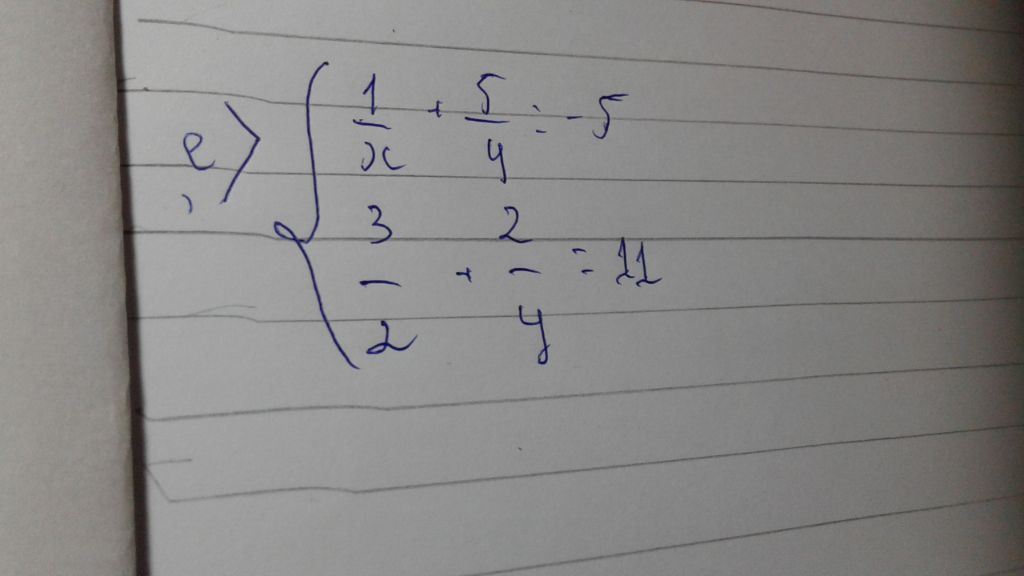 e) { 1/x + 5/y = -5
3/2 + 2/y = 11